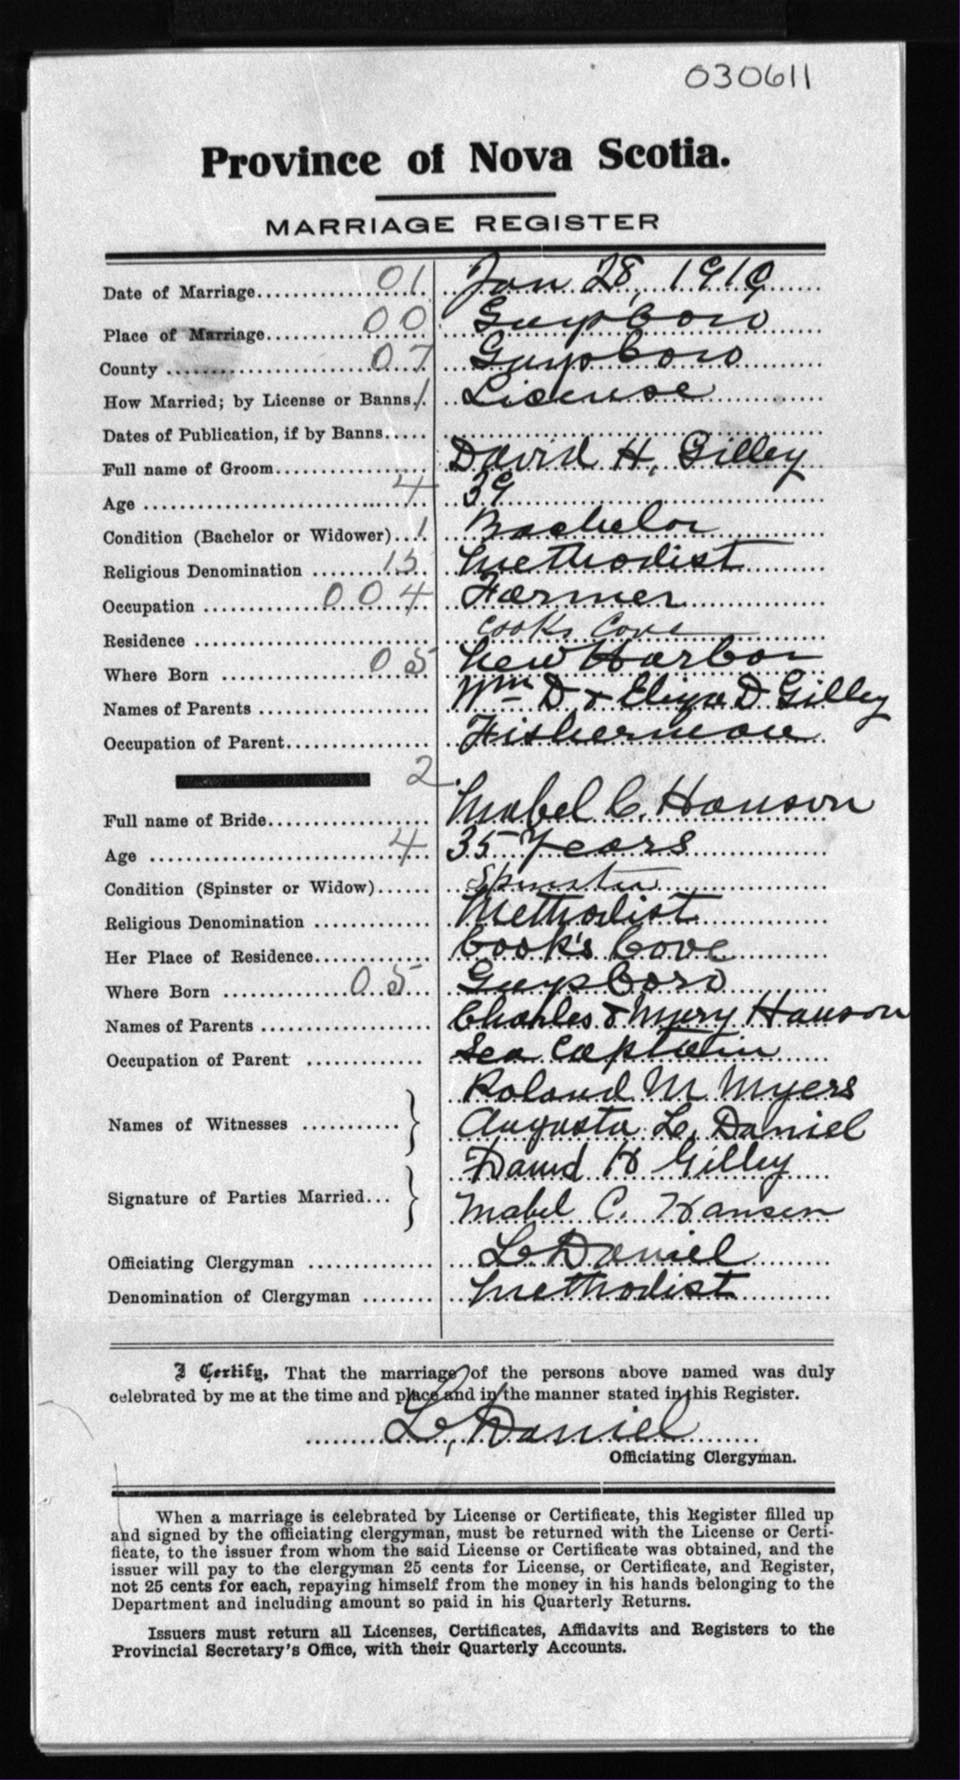 030611
Province of Nova Scotia.
MARRIAGE REGISTER
Date of Marriage 01 Jan 28, 1910
Place of Marriage 00 Guysboro
County 07 Guysboro
How Married; by License or Banns 1 License
Dates of Publication, if by Banns
Full name of Groom David H. Gilley
Age 4 39
Condition (Bachelor or Widower) 1 Bachelor
Religious Denomination 15 Methodist
Occupation 004 Farmer
Residence Cooks Cove
Where Born 05 New Harbor
Names of Parents Wm D. & Eliza D Gilley
Occupation of Parent Fisherman
2
Full name of Bride Mabel C. Hanson
Age 4 35 Years
Condition (Spinster or Widow) Spinster
Religious Denomination Methodist
Her Place of Residence Cook's Cove
Where Born 05 Guysboro
Names of Parents Charles & Mary Hanson
Occupation of Parent Sea Captain
Names of Witnesses Roland M Myers
Augusta L. Daniel
Signature of Parties Married David H Gilley
Mabel C. Hansen
Officiating Clergyman L Daniel
Denomination of Clergyman Methodist
I Certify, That the marriage of the persons above named was duly
celebrated by me at the time and place and in the manner stated in this Register.
L. Daniel
Officiating Clergyman.
When a marriage is celebrated by License or Certificate, this Register filled up
and signed by the officiating clergyman, must be returned with the License or Certi-
ficate, to the issuer from whom the said License or Certificate was obtained, and the
issuer will pay to the clergyman 25 cents for License, or Certificate, and Register,
not 25 cents for each, repaying himself from the money in his hands belonging to the
Department and including amount so paid in his Quarterly Returns.
Issuers must return all Licenses, Certificates, Affidavits and Registers to the
Provincial Secretary's Office, with their Quarterly Accounts.